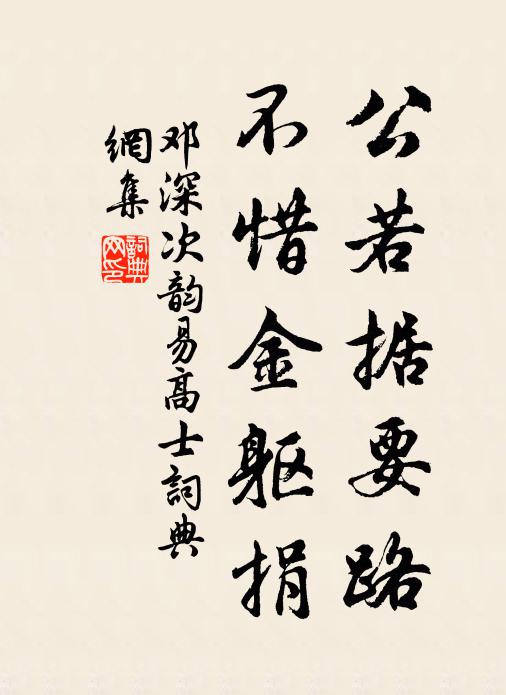 公若据要路
不惜金躯捐
邓深次韵易高士詞典
網集
詞典
网印